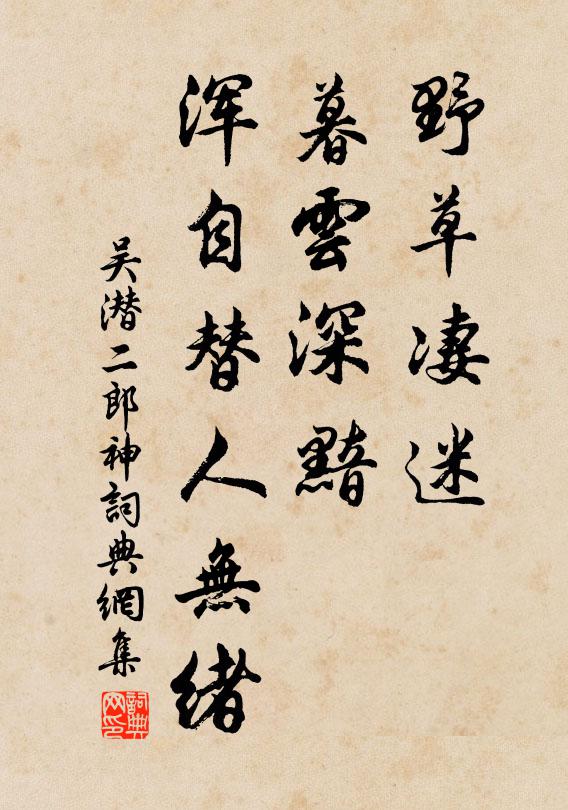 野草凄迷
暮雲深黯
浑自替人無緒
吴潜二郎神詞典網集
詞典网印